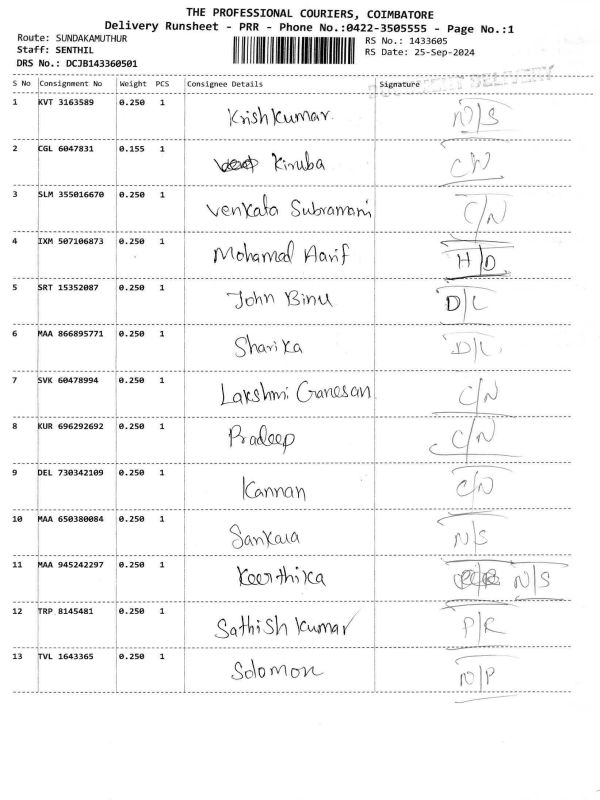 THE PROFESSIONAL COURIERS, COIMBATORE
Delivery Runsheet - PRR - Phone No.:0422-3505555 - Page No.:1
Route: SUNDAKAMUTHUR RS No.: 1433605
Staff: SENTHIL RS Date: 25-Sep-2024
DRS No.: DCJB143360501
S No Consignment No Weight PCS Consignee Details Signature
1 KVT 3163589 0.250 1 Krishkumar. N/S
2 CGL 6047831 0.155 1 Kiruba C/N
3 SLM 355016670 0.250 1 Venkata Subramani C/N
4 IXM 507106873 0.250 1 Mohamed Aarif H/D
5 SRT 15352087 0.250 1 John Binu D/L
6 MAA 866895771 0.250 1 Sharika D/L
7 SVK 60478994 0.250 1 Lakshmi Ganesan C/N
8 KUR 696292692 0.250 1 Pradeep C/N
9 DEL 730342109 0.250 1 Kannan C/N
10 MAA 650380084 0.250 1 Sankara N/S
11 MAA 945242297 0.250 1 Keerthika N/S
12 TRP 8145481 0.250 1 Sathish Kumar P/R
13 TVL 1643365 0.250 1 Solomon N/P